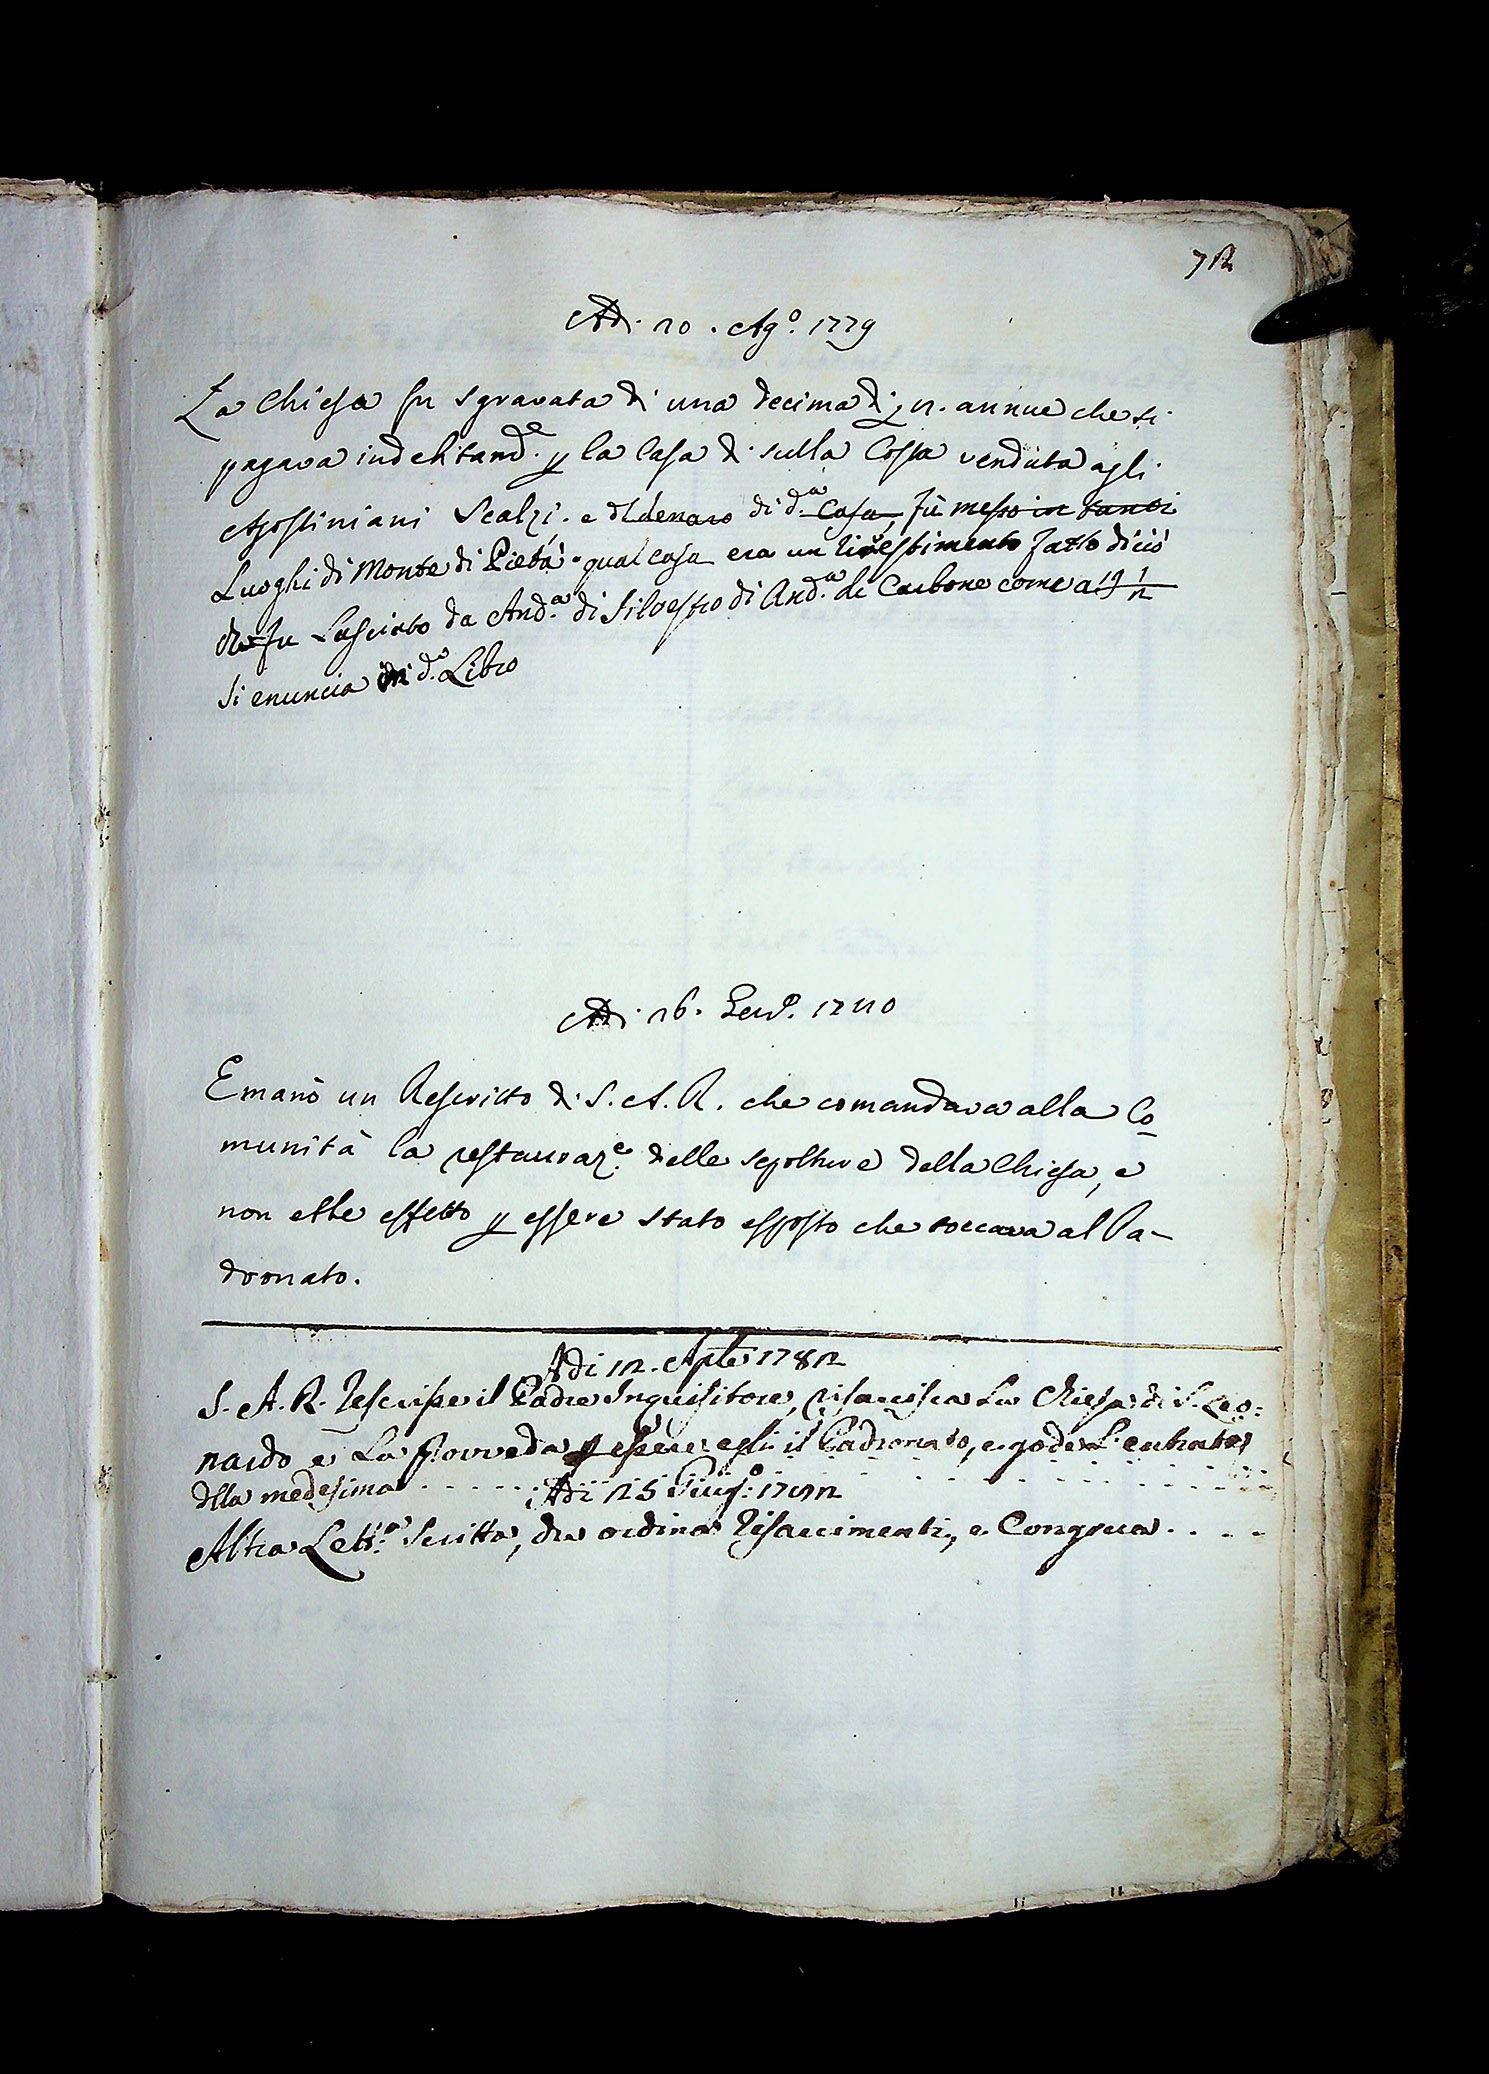 72
Adi 20. Ag.o 1779
La Chiesa fu sgravata di una decima di £ 2. annue che si
pagava indebitam.e p la Casa di sulla Costa venduta agli
Agostiniani Scalzi. e il denaro di d.a Casa, fù messo in tanti
Luoghi di Monte di Pietà. qual casa era un rivestimento fatto di ciò
che fu Lasciato da And.a di Silvestro di And.a di Carbone come a 19 1/2
si enuncia in d.o Libro
Adi 26. 1780
Emanò un Rescritto di S. A. R. che comandava alla Co
munità la restauraz.e delle sepolture della Chiesa, e
non ebbe effetto p essere stato esposto che toccava al Pa-
dronato.
Adi 12. Aple 1782
S. A. R. rescrisse il Padre Inquisitore, risarcisca La Chiesa di S. Leo:
nardo e La Provveda p essere egli il Padronato, e gode L'entrate
della medesima
Adi 25 Giug.o 1782
Altra Lett.a Scritta, che ordina risarcimenti, e Congrua . . . .